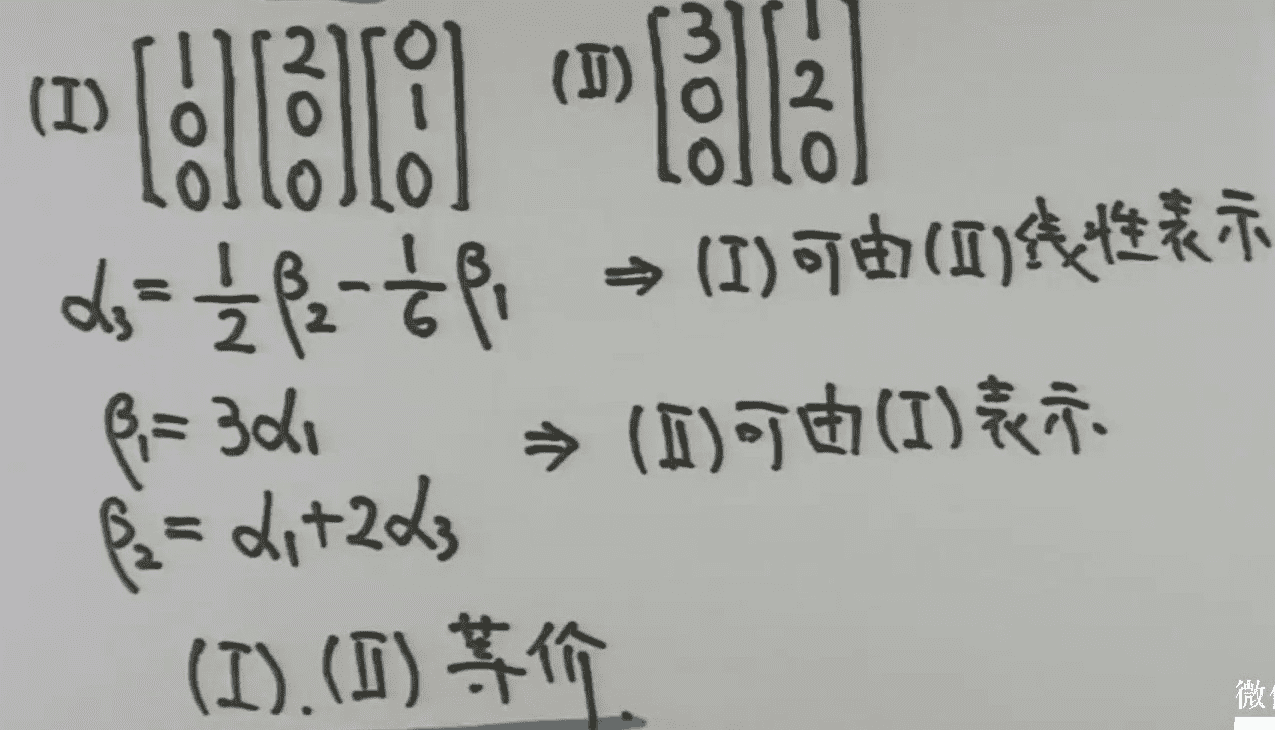 (I) [1 0 0] [2 0 0] [0 1 0] (II) [3 0 0] [1 2 0]
α₃ = 1/2 β₂ - 1/6 β₁ ⇒ (I) 可由 (II) 线性表示
β₁ = 3α₁ ⇒ (II) 可由 (I) 表示.
β₂ = α₁ + 2α₃
(I). (II) 等价.
微